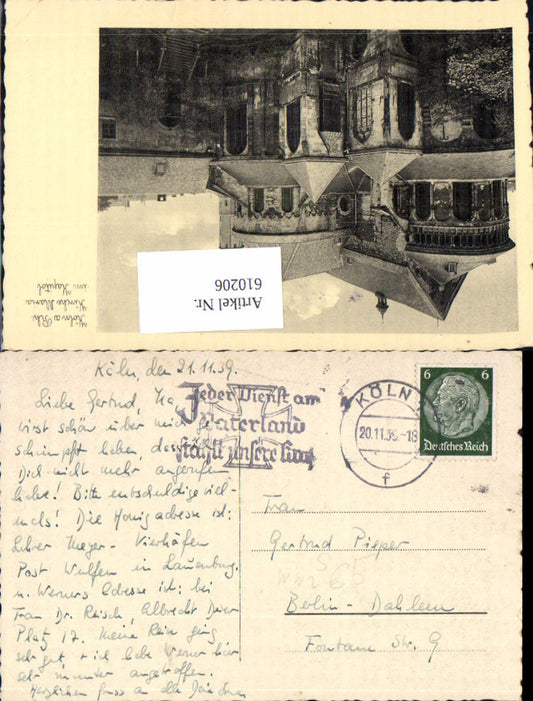 Köln a. Rh.
Kirche Maria
im Kapitol
Artikel Nr.
610206
Köln, den 21.11.39.
Liebe Gertrud, Na,
wirst schön über mich
schimpft haben, dass
Dich nicht mehr angerufen
habe! Bitte entschuldige viel-
mals! Die Honigadresse ist:
Meyer - Vierhöfen
Post Wulfen in Lauenburg.
u. Werners Adresse ist: bei
Frau Dr. Reisch, Albrecht Dürer
Platz 17. Meine Reise ging
sehr gut, + ich habe Werner hier
sehr munter angetroffen.
Herzlichen Gruss an alle
Jeder Dienst am
Vaterland
stählt unsere
KÖLN
20.11.39.-18
f
6 6
Deutsches Reich
Frau
Gertrud Pieper
WW2
Berlin - Dahlem
Fontane Str. 9